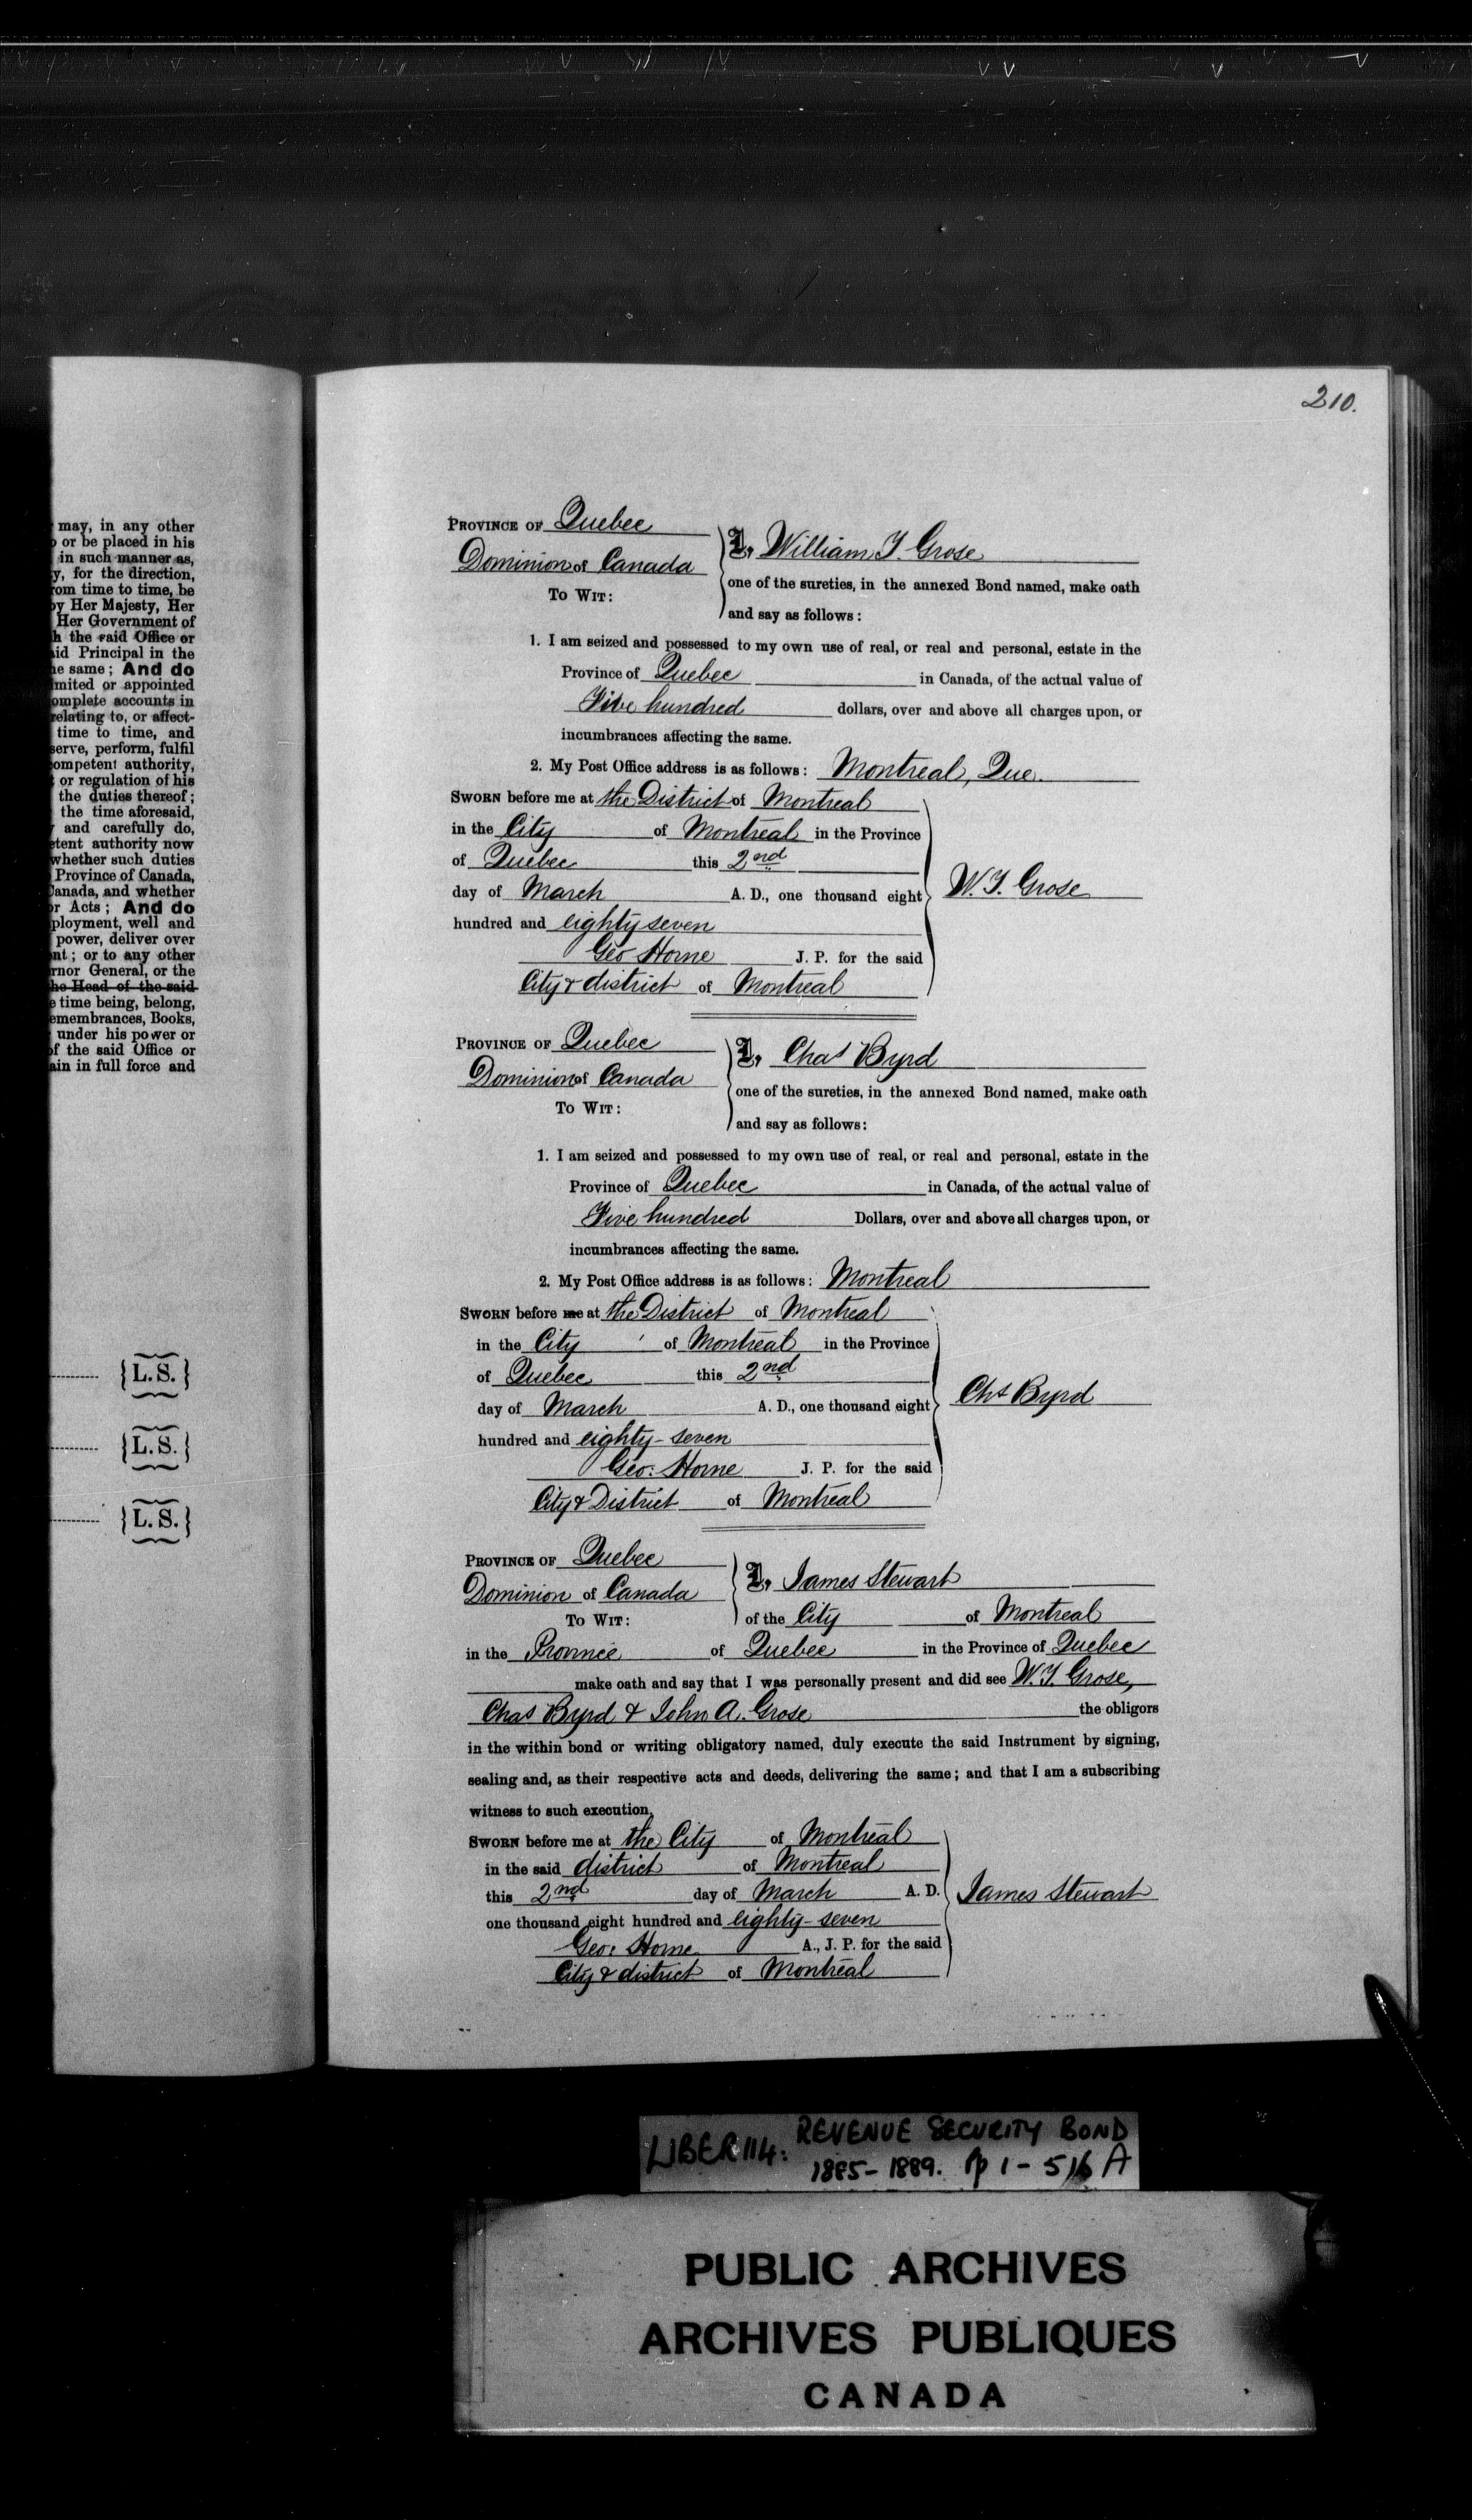 may, in any other
or be placed in his
in such manner as,
y, for the direction,
rom time to time, be
by Her Majesty, Her
Her Government of
h the said Office or
aid Principal in the
he same; And do
mited or appointed
omplete accounts in
relating to, or affect-
time to time, and
serve, perform, fulfil
ompetent authority,
or regulation of his
the duties thereof;
the time aforesaid,
and carefully do,
etent authority now
whether such duties
Province of Canada,
Canada, and whether
or Acts; And do
ployment, well and
power, deliver over
nt; or to any other
rnor General, or the
he Head of the said
e time being, belong,
emembrances, Books,
under his power or
of the said Office or
ain in full force and
{L.S.}
{L.S.}
{L.S.}
210.
PROVINCE OF Quebec
Dominion of Canada
TO WIT:
I, William T. Grose
one of the sureties, in the annexed Bond named, make oath
and say as follows:
1. I am seized and possessed to my own use of real, or real and personal, estate in the
Province of Quebec in Canada, of the actual value of
Five hundred dollars, over and above all charges upon, or
incumbrances affecting the same.
2. My Post Office address is as follows: Montreal, Que.
SWORN before me at the District of Montreal
in the City of Montreal in the Province
of Quebec this 2nd
day of March A. D., one thousand eight
hundred and eighty seven
Geo Horne J. P. for the said
City & district of Montreal
W. T. Grose
PROVINCE OF Quebec
Dominion of Canada
TO WIT:
I, Chas Byrd
one of the sureties, in the annexed Bond named, make oath
and say as follows:
1. I am seized and possessed to my own use of real, or real and personal, estate in the
Province of Quebec in Canada, of the actual value of
Five hundred Dollars, over and above all charges upon, or
incumbrances affecting the same.
2. My Post Office address is as follows: Montreal
SWORN before me at the District of Montreal
in the City of Montreal in the Province
of Quebec this 2nd
day of March A. D., one thousand eight
hundred and eighty-seven
Geo: Horne J. P. for the said
City & District of Montreal
Chs Byrd
PROVINCE OF Quebec
Dominion of Canada
TO WIT:
I, James Stewart
of the City of Montreal
in the Province of Quebec in the Province of Quebec
make oath and say that I was personally present and did see W. T. Grose,
Chas Byrd & John A. Grose the obligors
in the within bond or writing obligatory named, duly execute the said Instrument by signing,
sealing and, as their respective acts and deeds, delivering the same; and that I am a subscribing
witness to such execution.
SWORN before me at the City of Montreal
in the said district of Montreal
this 2nd day of March A. D.
one thousand eight hundred and eighty-seven
Geo: Horne A., J. P. for the said
City & district of Montreal
James Stewart
LIBER 114: REVENUE SECURITY BOND
1885-1889. pp 1-516 A
PUBLIC ARCHIVES
ARCHIVES PUBLIQUES
CANADA